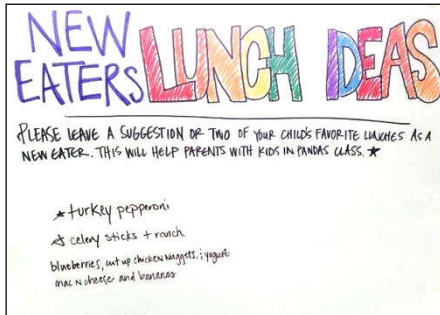 NEW
EATERS LUNCH IDEAS
PLEASE LEAVE A SUGGESTION OR TWO OF YOUR CHILD'S FAVORITE LUNCHES AS A
NEW EATER. THIS WILL HELP PARENTS WITH KIDS IN PANDAS CLASS. ★
★ turkey pepperoni
☆ celery sticks + ranch
blueberries, cut up chicken nuggets, yogurt
mac n cheese and bananas